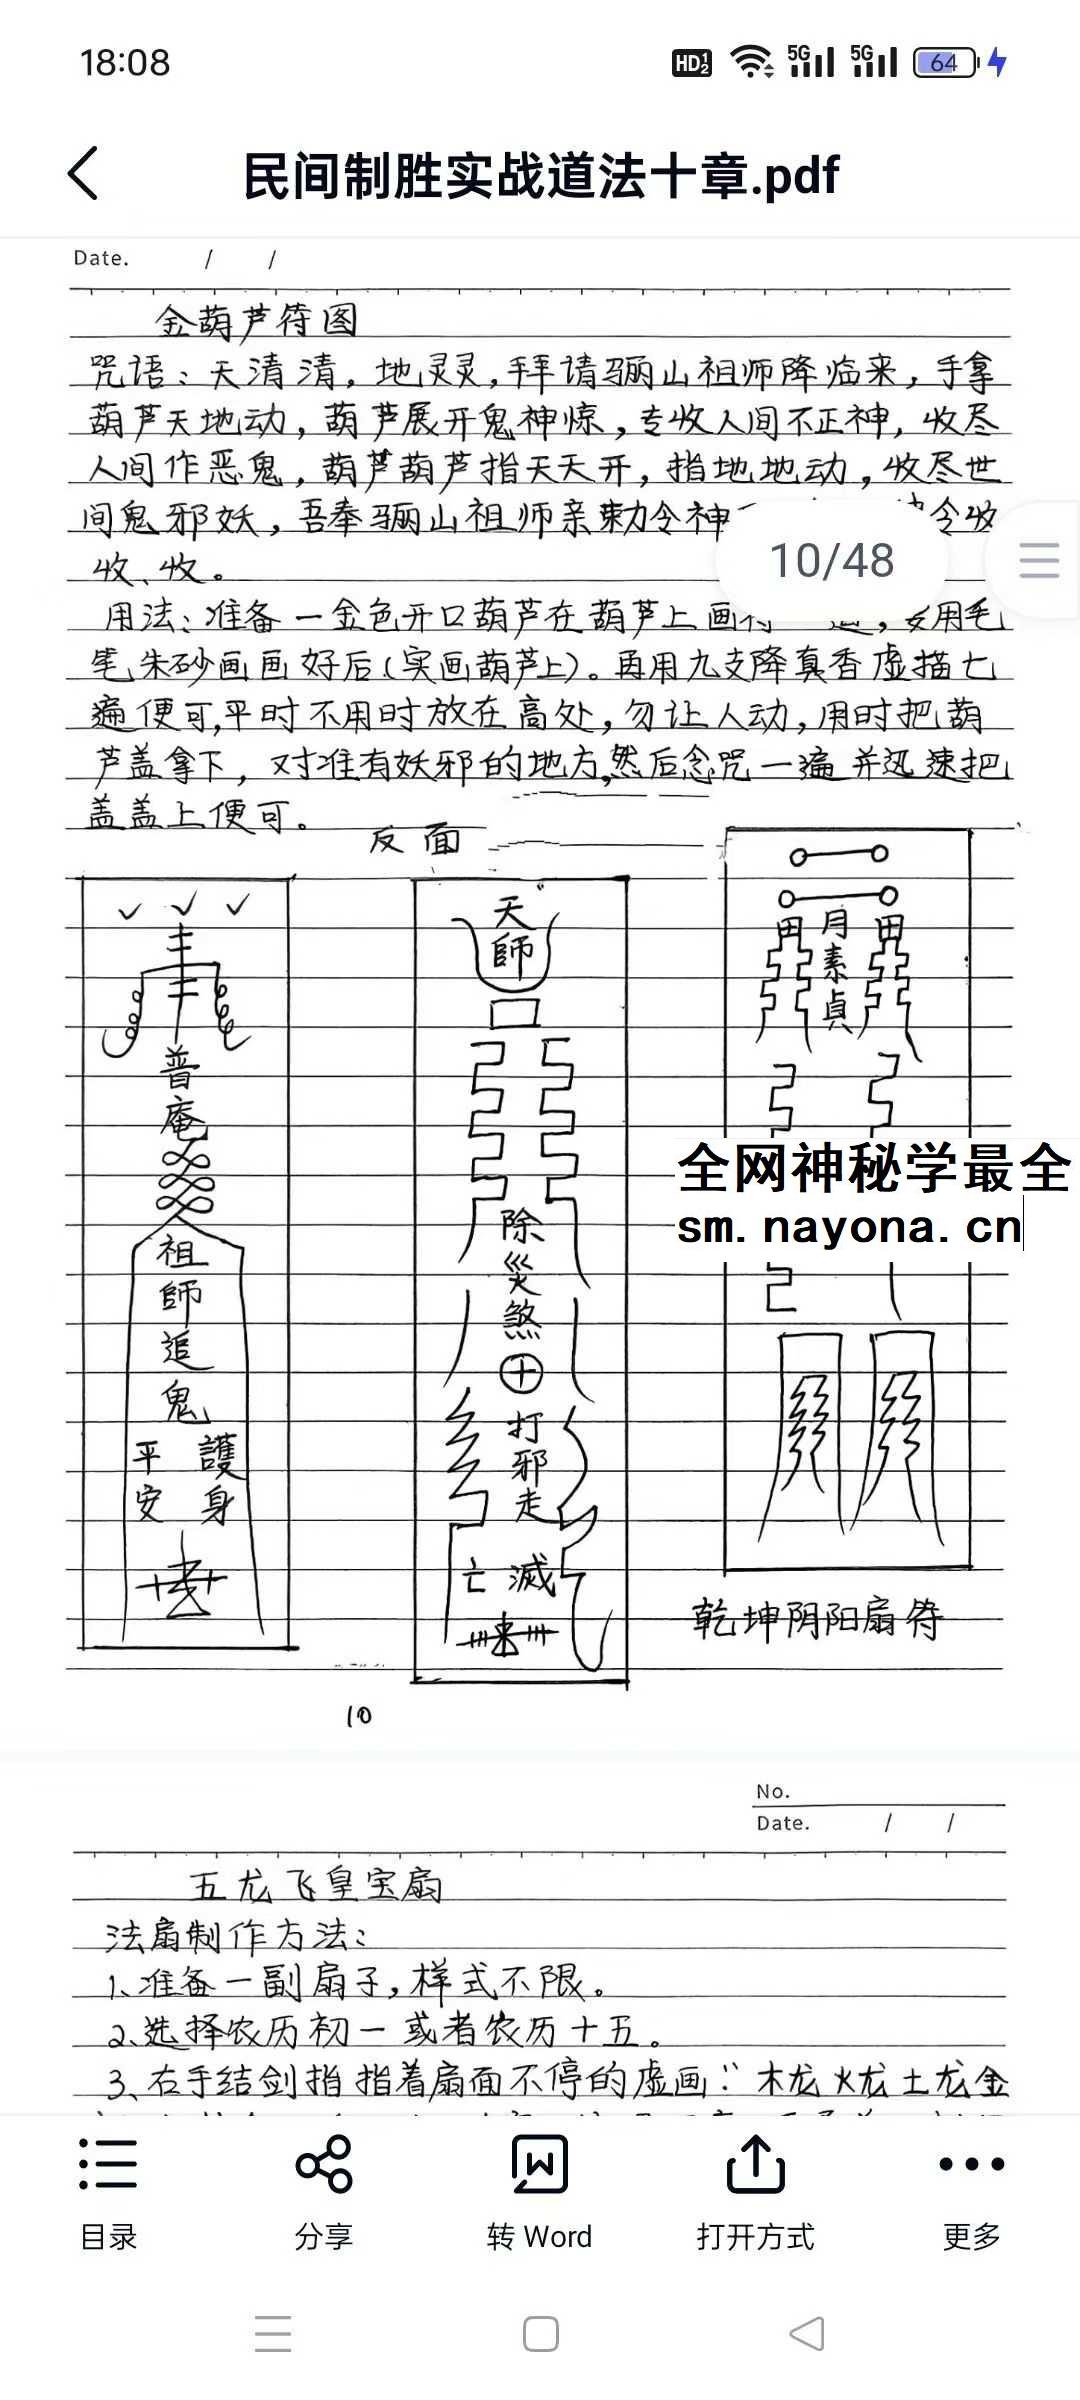 18:08
HD 1 2 5G 5G 64
民间制胜实战道法十章.pdf
Date. / /
金葫芦符图
咒语：天清清，地灵灵，拜请骊山祖师降临来，手拿
葫芦天地动，葫芦展开鬼神惊，专收人间不正神，收尽
人间作恶鬼，葫芦葫芦指天天开，指地地动，收尽世
间鬼邪妖，吾奉骊山祖师亲勅令神 令收
收、收。
10/48
用法：准备一金色开口葫芦在葫芦上画符一道，要用毛
笔朱砂画画好后（实画葫芦上）。再用九支降真香虚描七
遍便可,平时不用时放在高处，勿让人动，用时把葫
芦盖拿下，对准有妖邪的地方,然后念咒一遍并迅速把
盖盖上便可。
反面
普
庵
祖
師
追
鬼
平 護
安 身
天
師
除
災
煞
打
邪
走
亡 滅
田 月 田
素
貞
全网神秘学最全
sm.nayona.cn
乾坤阴阳扇符
10
No.
Date. / /
五龙飞皇宝扇
法扇制作方法：
1、准备一副扇子，样式不限。
2、选择农历初一或者农历十五。
3、右手结剑指指着扇面不停的虚画："木龙火龙土龙金
目录
分享
转 Word
打开方式
更多